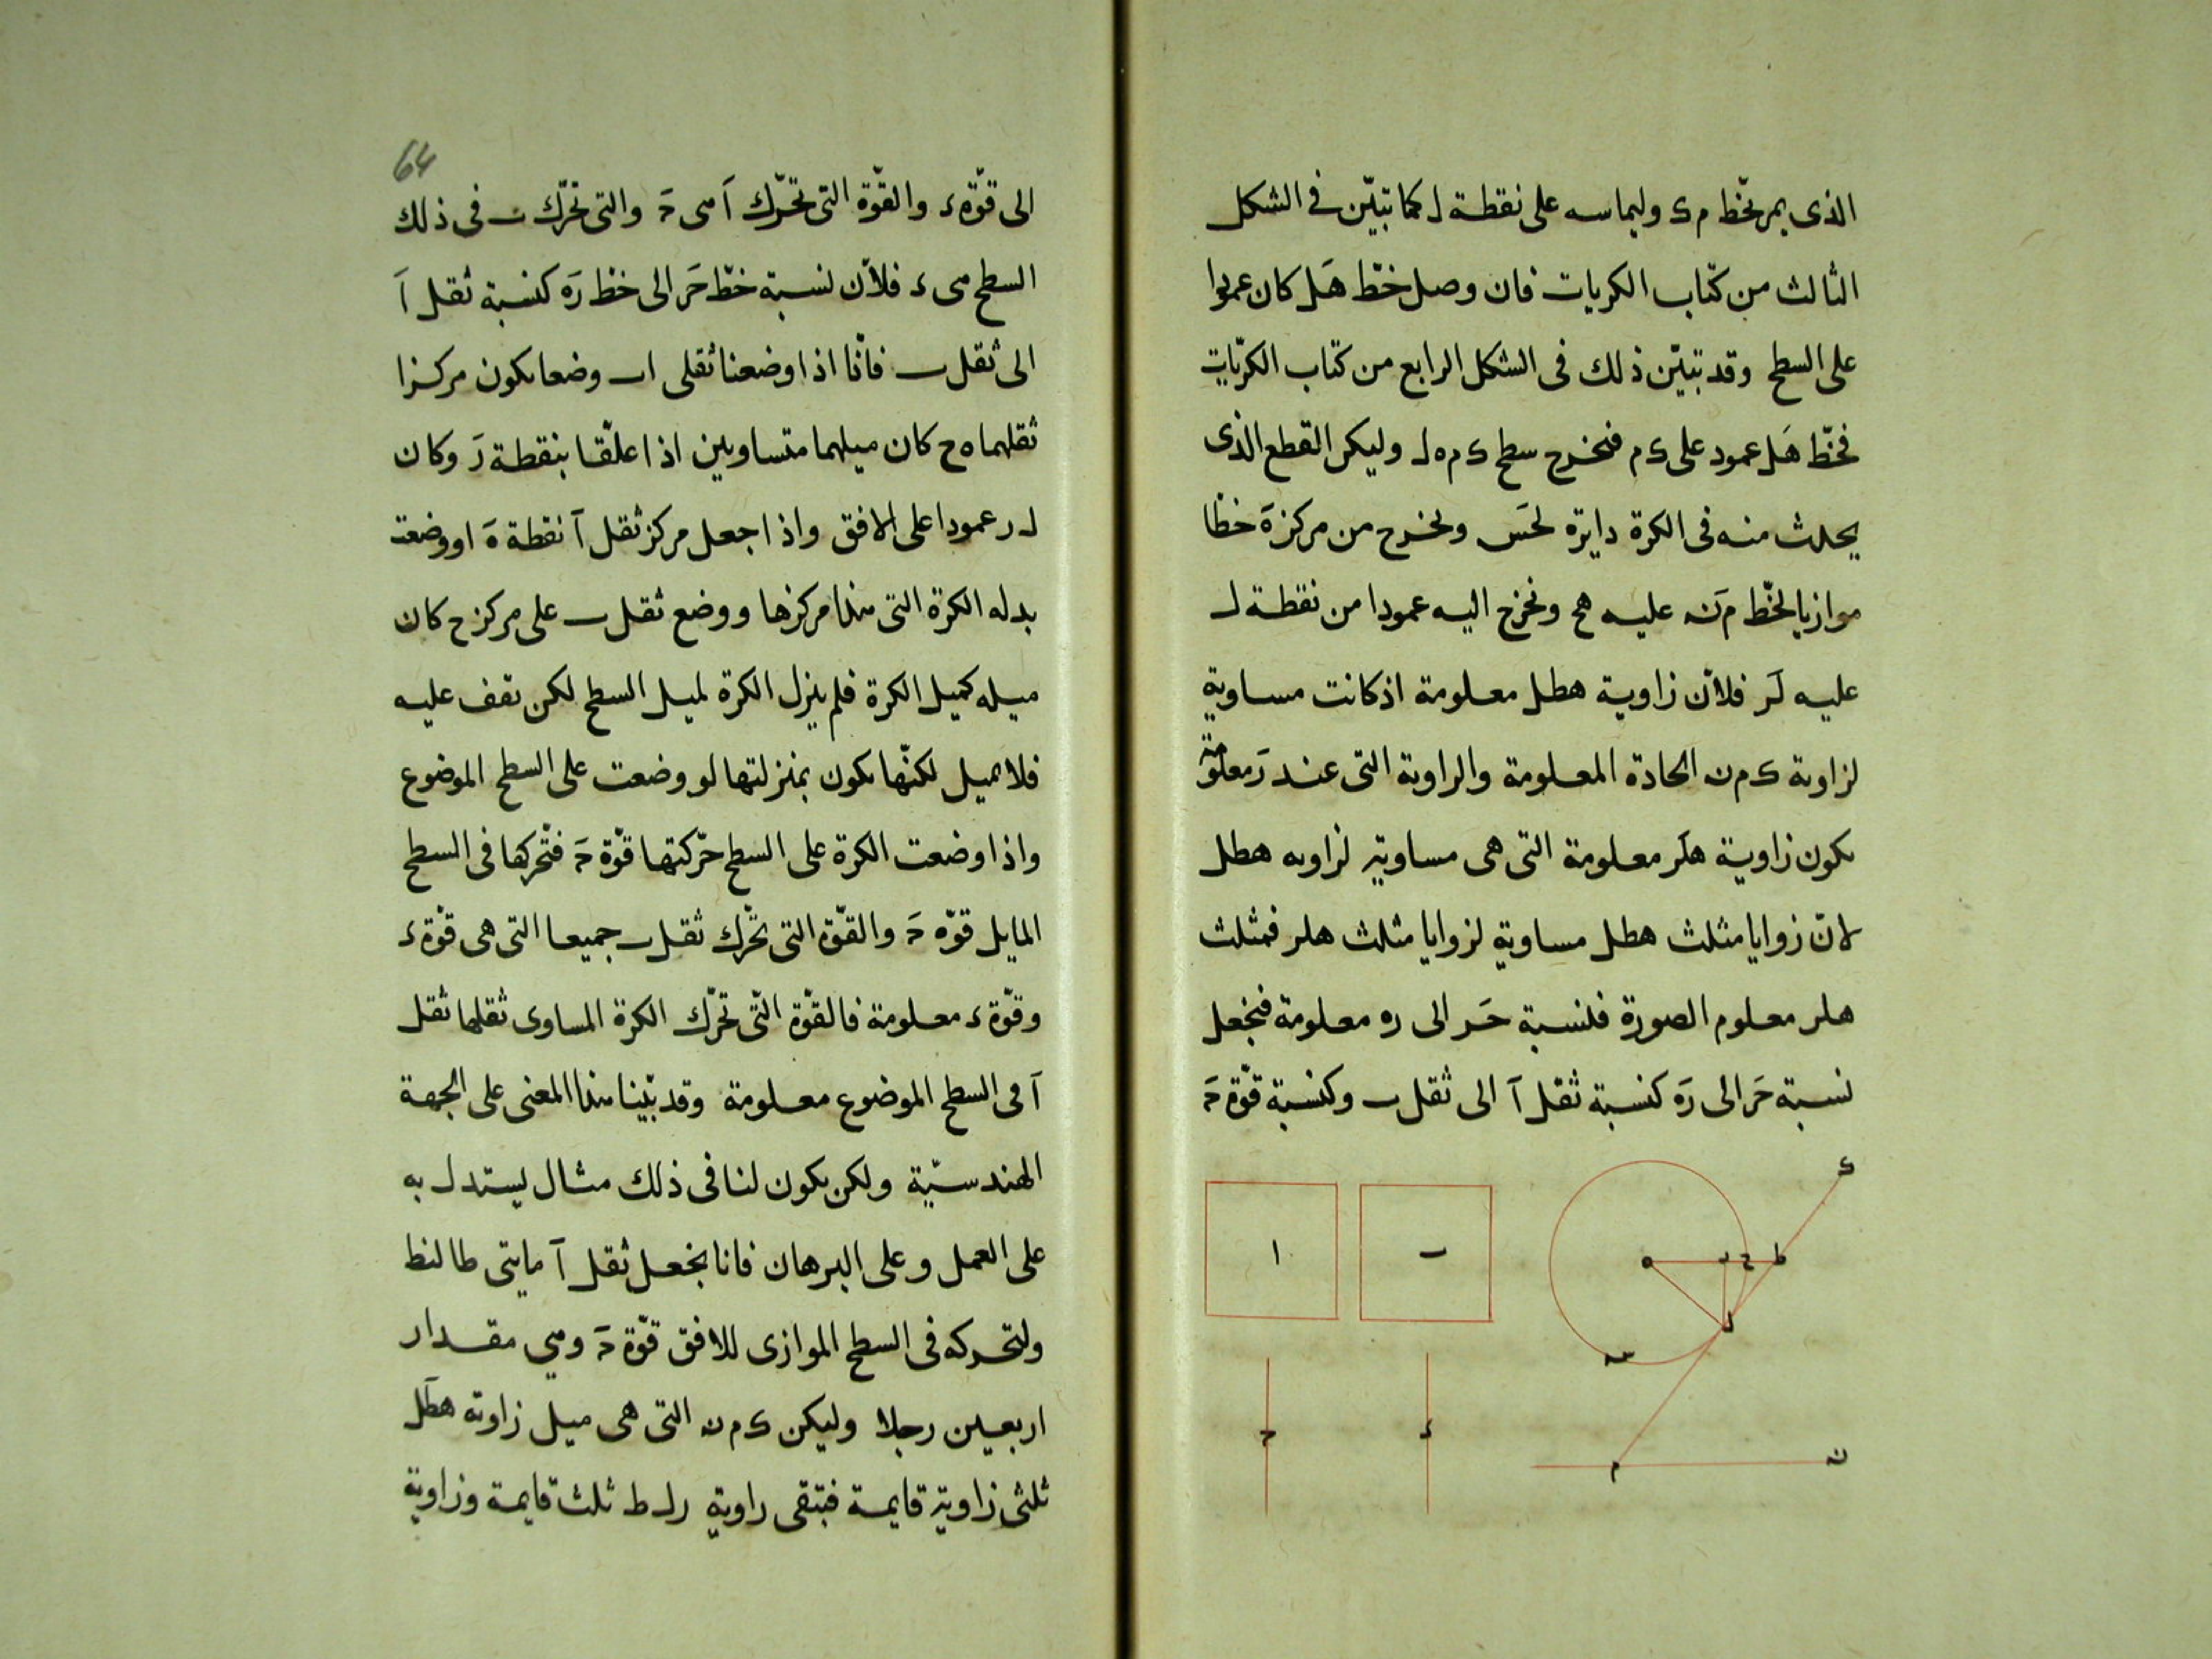 الذى يمر بخّط م ك وليماسه على نقطة ل كما تبيّن فى الشكل
الثالث من كتاب الكريات فان وصل خّط هَل كان عمودا
على السطح وقد تبيّن ذلك فى الشكل الرابع من كتاب الكريّات
فخّط هَل عمود على ك م فنخرج سطح ك م ه ل وليكن القطع الذى
يحدث منه فى الكرة دايرة لحَس ونخرج من مركز هَ خطّا
موازيا لخّط م ن عليه هح ونخرج اليه عمودا من نقطة ل
عليه لَر فلانّ زاوية هطل معلومة اذ كانت مساوية
لزاوية ك م ن الحادة المعلومة والزاوية التى عند رَ معلومة
يكون زاوية هلَر معلومة التى هى مساوية لزاوية هطل
لانّ زوايا مثلث هطل مساوية لزوايا مثلث هلر فمثلث
هلر معلوم الصورة فلنسبة حَر الى ره معلومة فنجعل
نسبة حَر الى رَه كنسبة ثقل آ الى ثقل ب وكنسبة قوّة حَ
ك
ا
ب
ه
ر
ح
ط
ل
س
ح
ء
م
ن
64
الى قوّة ء والقوّة التى تحرّك آ هى حَ والتى تحرّك ب فى ذلك
السطح هى ء فلانّ نسبة خطّ حَر الى خطّ رَه كنسبة ثقل آ
الى ثقل ب فانّا اذا وضعنا ثقلى اب وضعا يكون مركزا
ثقلهما ه ح كان ميلهما متساويين اذا علّقا بنقطة رَ وكان
ل ر عمودا على الافق واذا جعل مركز ثقل آ نقطة هَ او وضعت
بدله الكرة التى هذا مركزها ووضع ثقل ب على مركز ح كان
ميله كميل الكرة فلم ينزل الكرة لميل السطح لكن تقف عليه
فلا تميل لكنّها يكون بمنزلتها لو وضعت على السطح الموضوع
واذا وضعت الكرة على السطح حرّكتها قوّة حَ فتحركها فى السطح
المايل قوّه حَ والقوّة التى تحّرك ثقل ب جميعا التى هى قوّة ء
وقوّة ء معلومة فالقوّة التّى تحرّك الكرة المساوى ثقلها ثقل
آ فى السطح الموضوع معلومة وقد بيّنا هذا المعنى على الجهة
الهندسيّة ولكن يكون لنا فى ذلك مثال يستدل به
على العمل وعلى البرهان فانا نجعل ثقل آ مايتى طالنطا
ولتحركه فى السطح الموازى للافق قوّة حَ وهى مقدار
اربعين رجلا وليكن ك م ن التى هى ميل زاوية هطَل
ثلثى زاوية قايمة فبتقى زاوية ر ل ط ثلث قايمة وزاوية